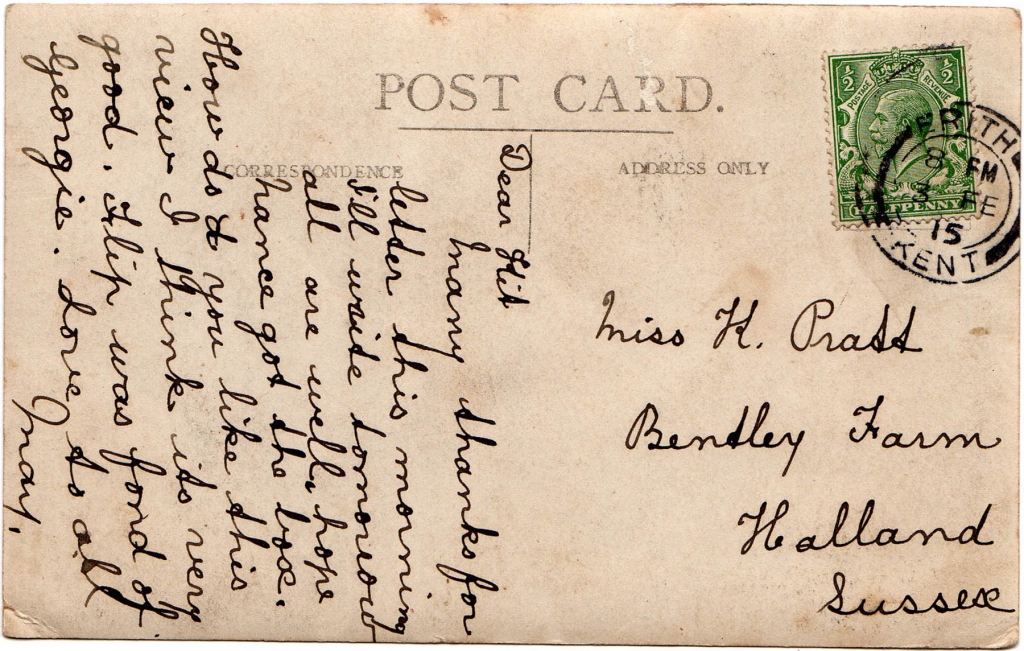 POST CARD.
CORRESPONDENCE
ADDRESS ONLY
½ ½
POSTAGE REVENUE
HALFPENNY
ERITH
8 PM
3 FE
15
KENT
Dear Kit
many thanks for
letter this morning
I'll write tomorrow
all are well, hope
hance got the box.
How do you like this
view I think its very
good. Flip was fond of
Georgie. Love to all
May.
Miss K. Pratt
Bentley Farm
Halland
Sussex